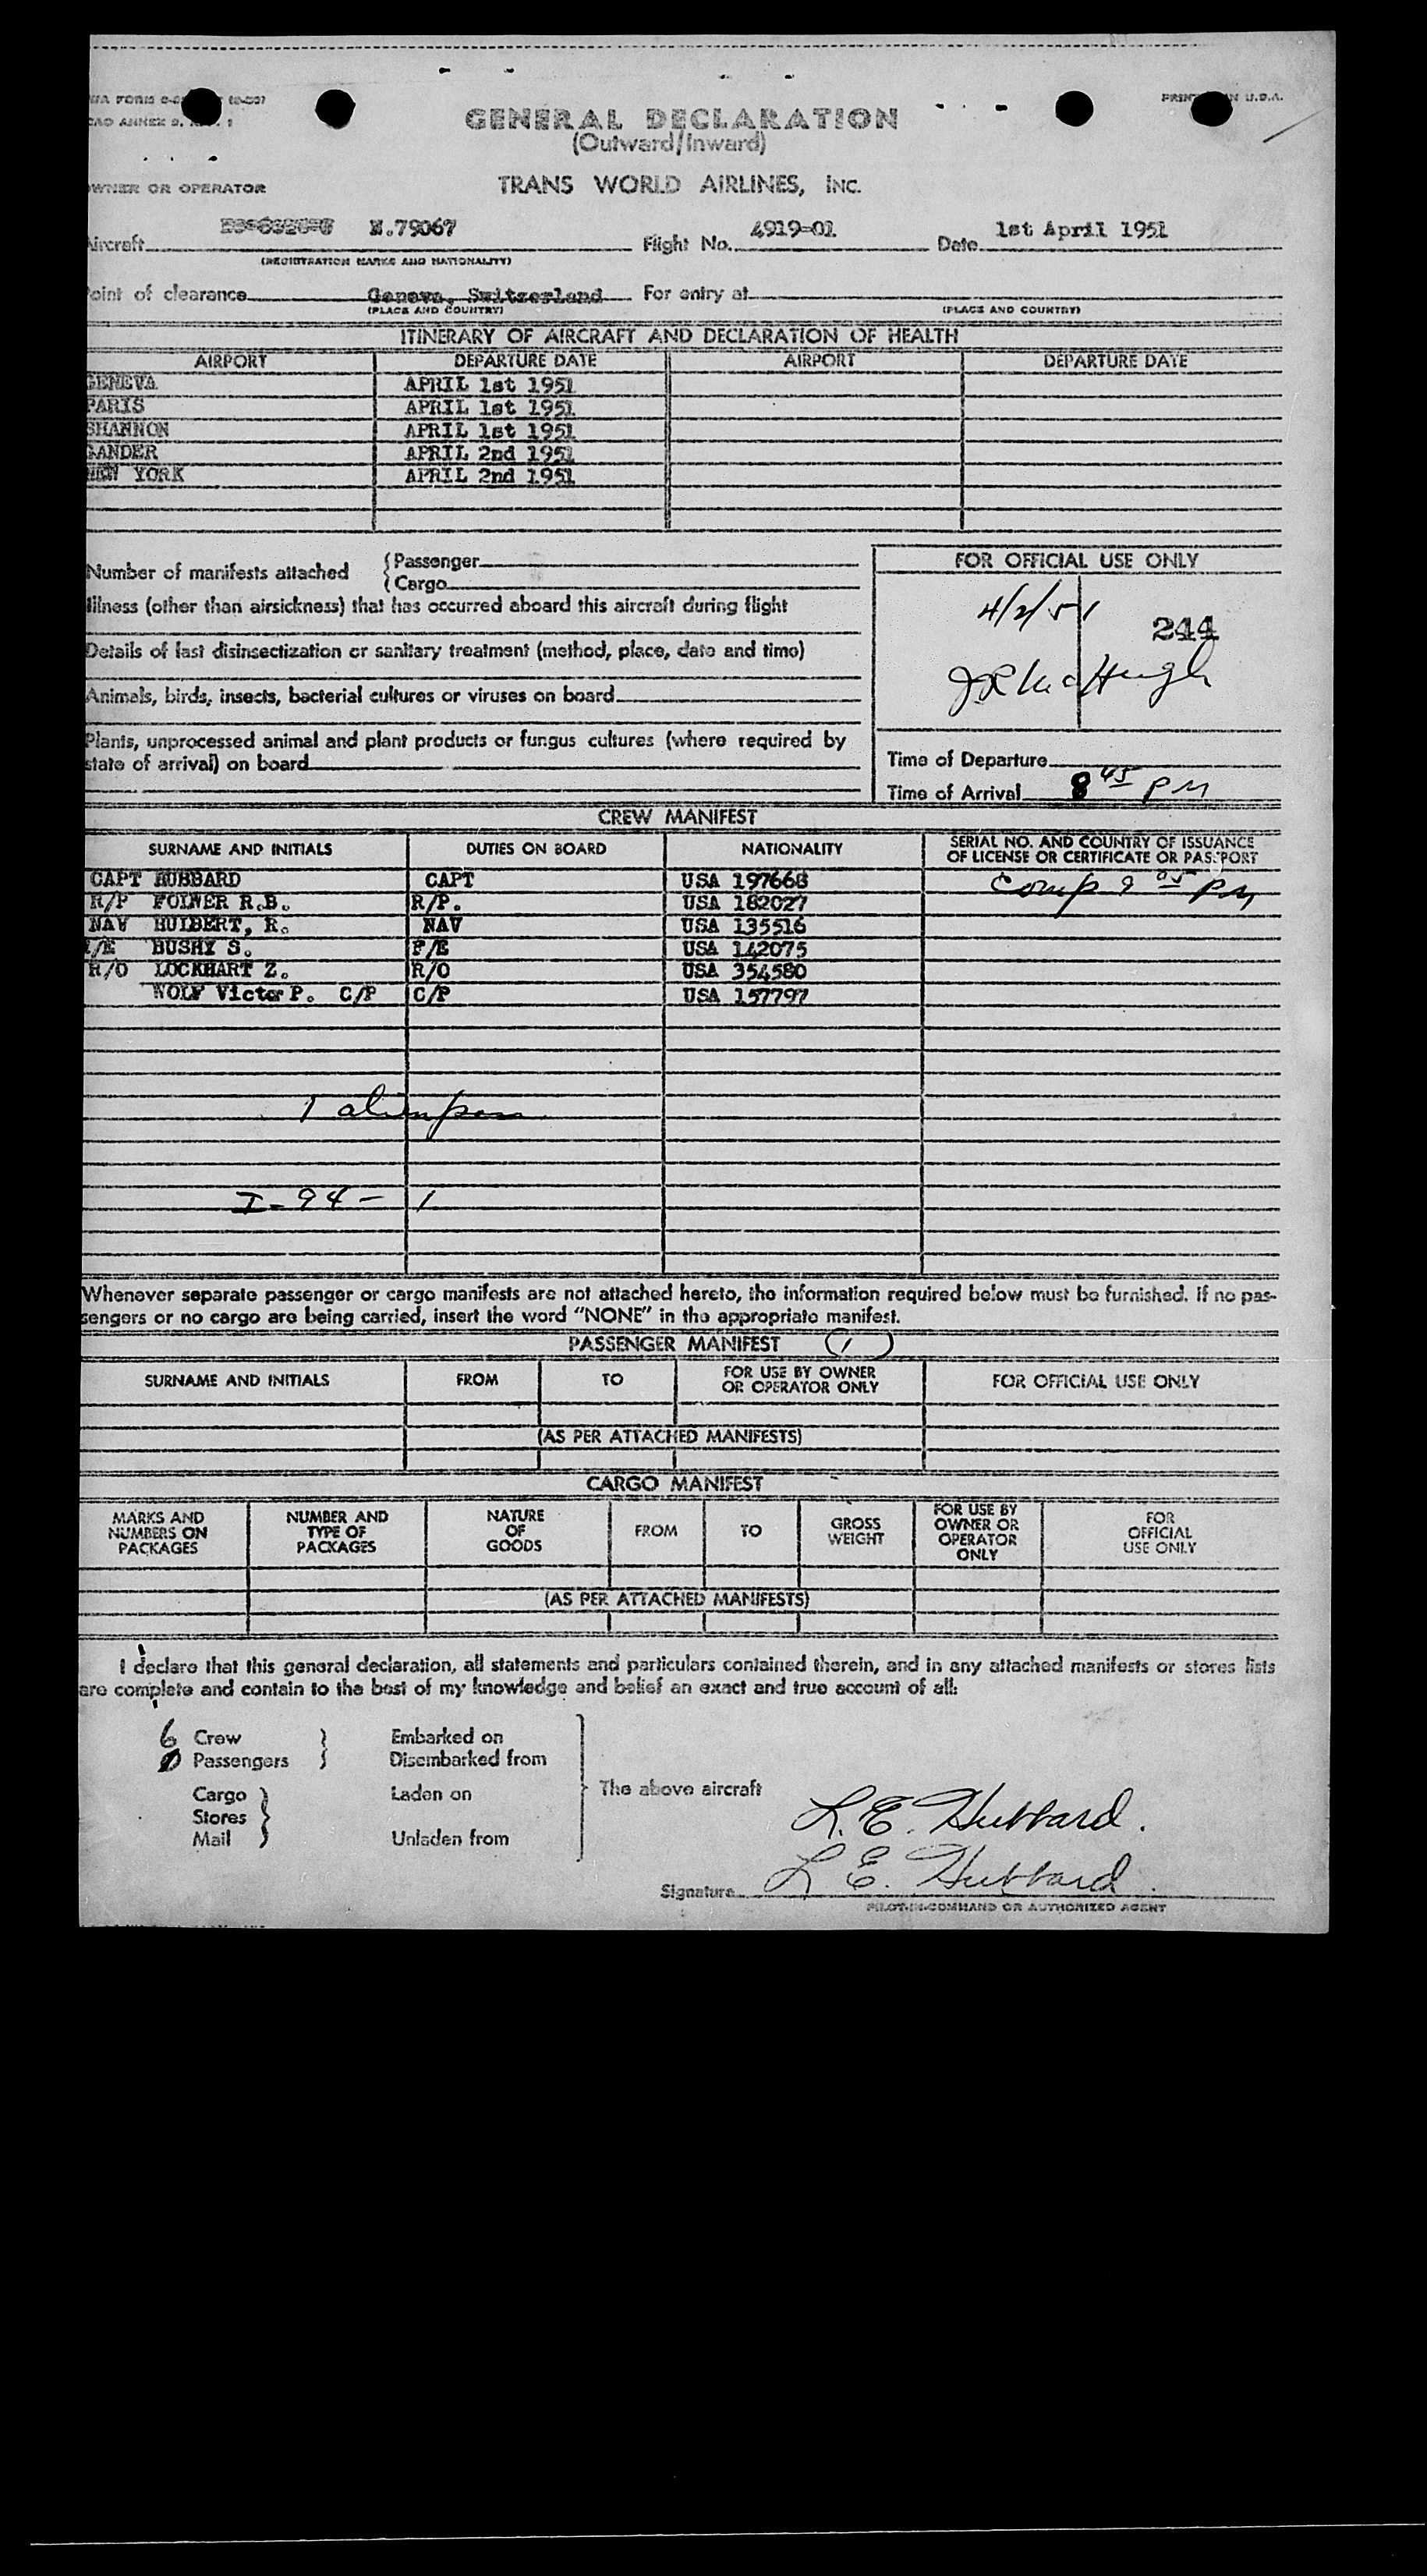 GENERAL DECLARATION
(Outward/Inward)
PRINTED IN U.S.A.
OWNER OR OPERATOR TRANS WORLD AIRLINES, INC.
Aircraft N.79067 Flight No. 4919-01 Date 1st April 1951
(REGISTRATION MARKS AND NATIONALITY)
Point of clearance Geneva, Switzerland For entry at
(PLACE AND COUNTRY) (PLACE AND COUNTRY)
ITINERARY OF AIRCRAFT AND DECLARATION OF HEALTH
AIRPORT DEPARTURE DATE AIRPORT DEPARTURE DATE
GENEVA APRIL 1st 1951
PARIS APRIL 1st 1951
SHANNON APRIL 1st 1951
GANDER APRIL 2nd 1951
NEW YORK APRIL 2nd 1951
Number of manifests attached { Passenger
{ Cargo
Illness (other than airsickness) that has occurred aboard this aircraft during flight
Details of last disinsectization or sanitary treatment (method, place, date and time)
Animals, birds, insects, bacterial cultures or viruses on board
Plants, unprocessed animal and plant products or fungus cultures (where required by
state of arrival) on board
FOR OFFICIAL USE ONLY
4/2/51
244
JR McHugh
Time of Departure
Time of Arrival 8 45 PM
CREW MANIFEST
SURNAME AND INITIALS DUTIES ON BOARD NATIONALITY SERIAL NO. AND COUNTRY OF ISSUANCE
OF LICENSE OR CERTIFICATE OR PASSPORT
CAPT HUBBARD CAPT USA 197668 Comp 9 05 PM
R/P R.B. R/P. USA 182027
NAV HULBERT, R. NAV USA 135516
F/E BUSHY S. F/E USA 142075
R/O LOCKHART Z. R/O USA 354580
WOLF Victor P. C/P C/P USA 157797
1 alien pass
I-94- 1
Whenever separate passenger or cargo manifests are not attached hereto, the information required below must be furnished. If no pas-
sengers or no cargo are being carried, insert the word "NONE" in the appropriate manifest.
PASSENGER MANIFEST (1)
SURNAME AND INITIALS FROM TO FOR USE BY OWNER
OR OPERATOR ONLY FOR OFFICIAL USE ONLY
(AS PER ATTACHED MANIFESTS)
CARGO MANIFEST
MARKS AND
NUMBERS ON
PACKAGES
NUMBER AND
TYPE OF
PACKAGES
NATURE
OF
GOODS
FROM
TO
GROSS
WEIGHT
FOR USE BY
OWNER OR
OPERATOR
ONLY
FOR
OFFICIAL
USE ONLY
(AS PER ATTACHED MANIFESTS)
I declare that this general declaration, all statements and particulars contained therein, and in any attached manifests or stores lists
are complete and contain to the best of my knowledge and belief an exact and true account of all:
6 Crew } Embarked on
Passengers } Disembarked from
Cargo } Laden on
Stores }
Mail } Unladen from
The above aircraft
L. E. Hubbard.
Signature L E. Hubbard.
PILOT-IN-COMMAND OR AUTHORIZED AGENT